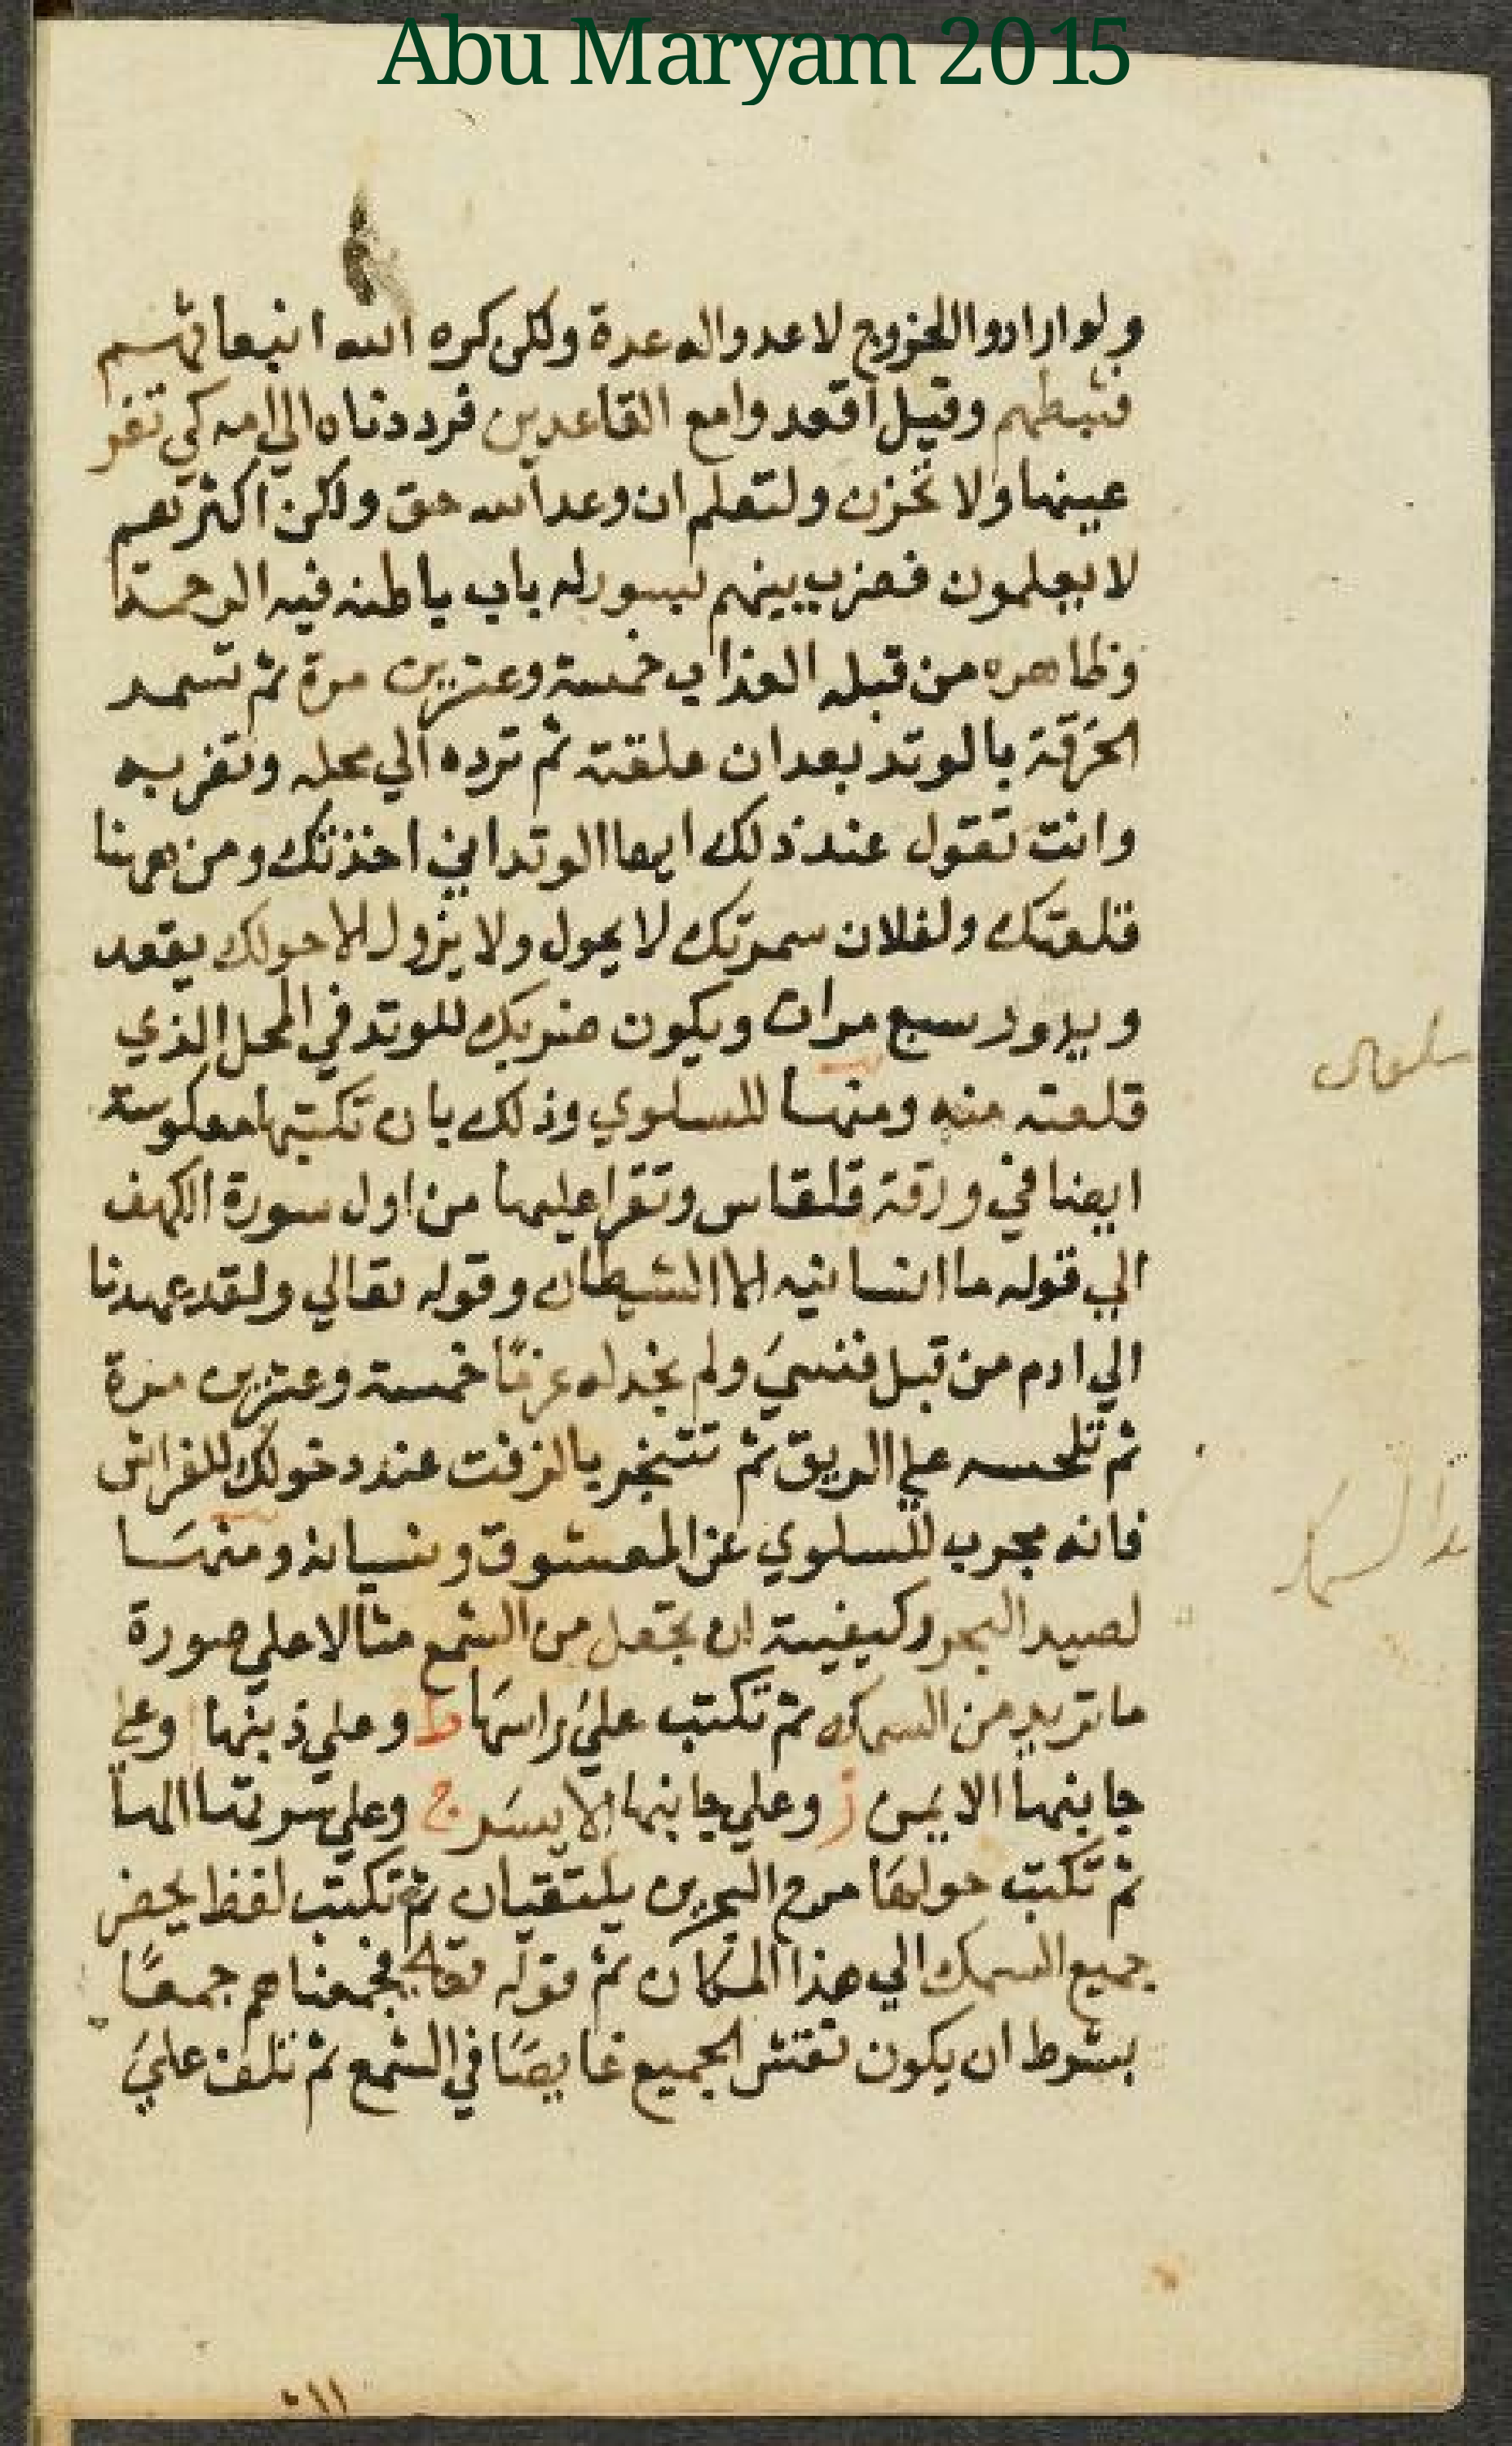 Abu Maryam 2015
ولو ارادوا الخروج لاعدوا له عدة ولكن كره الله انبعاثهم
فثبطهم وقيل اقعدوا مع القاعدين فرددناه الي امه كي تقر
عينها ولا تحزن ولتعلم ان وعد الله حق ولكن اكثرهم
لا يعلمون فضرب بينهم بسور له باب باطنه فيه الرحمة
وظاهره من قبله العذاب خمسة وعشرين مرة ثم تسمد
الحرقة بالوتد بعد ان علقته ثم ترده الي محله وتضربه
وانت تقول عند ذلك ايها الوتد اني اخذتك ومن ههنا
قلعتك ولفلان سمرتك لا يحول ولا يزول الا حولك يقعد
ويدور سبع مرات ويكون ضربك للوتد في المحل الذي
قلعته منه ومنها للسلوي وذلك بان تكتبها معكوسة
ايضا في ورقة قلقاس وتقرا عليها من اول سورة الكهف
الي قوله ما انسانيه الا الشيطان وقوله تعالي ولقد عهدنا
الي ادم من قبل فنسي ولم نجد له عزمًا خمسة وعشرين مرة
ثم تلحسه علي الريق ثم تتبخر بالزفت عند دخولك للفراش
فانه مجرب للسلوي عن المعشوق ونسيانه ومنها
لصيد البحر وكيفيته ان تجعل من الشمع مثالا علي صورة
ما تريد من السمك ثم تكتب علي راسها ط وعلي ذنبها ا وعلي
جانبها الايمن ز وعلي جانبها الايسر ج وعلي سرتها الها
ثم تكتب حولها مرج البحرين يلتقيان ثم تكتب لفظ يحضر
جميع السمك الي هذا المكان ثم قوله تعالي فجمعناهم جمعًا
بشرط ان يكون نقش الجميع غايصًا في الشمع ثم تلف علي
١١